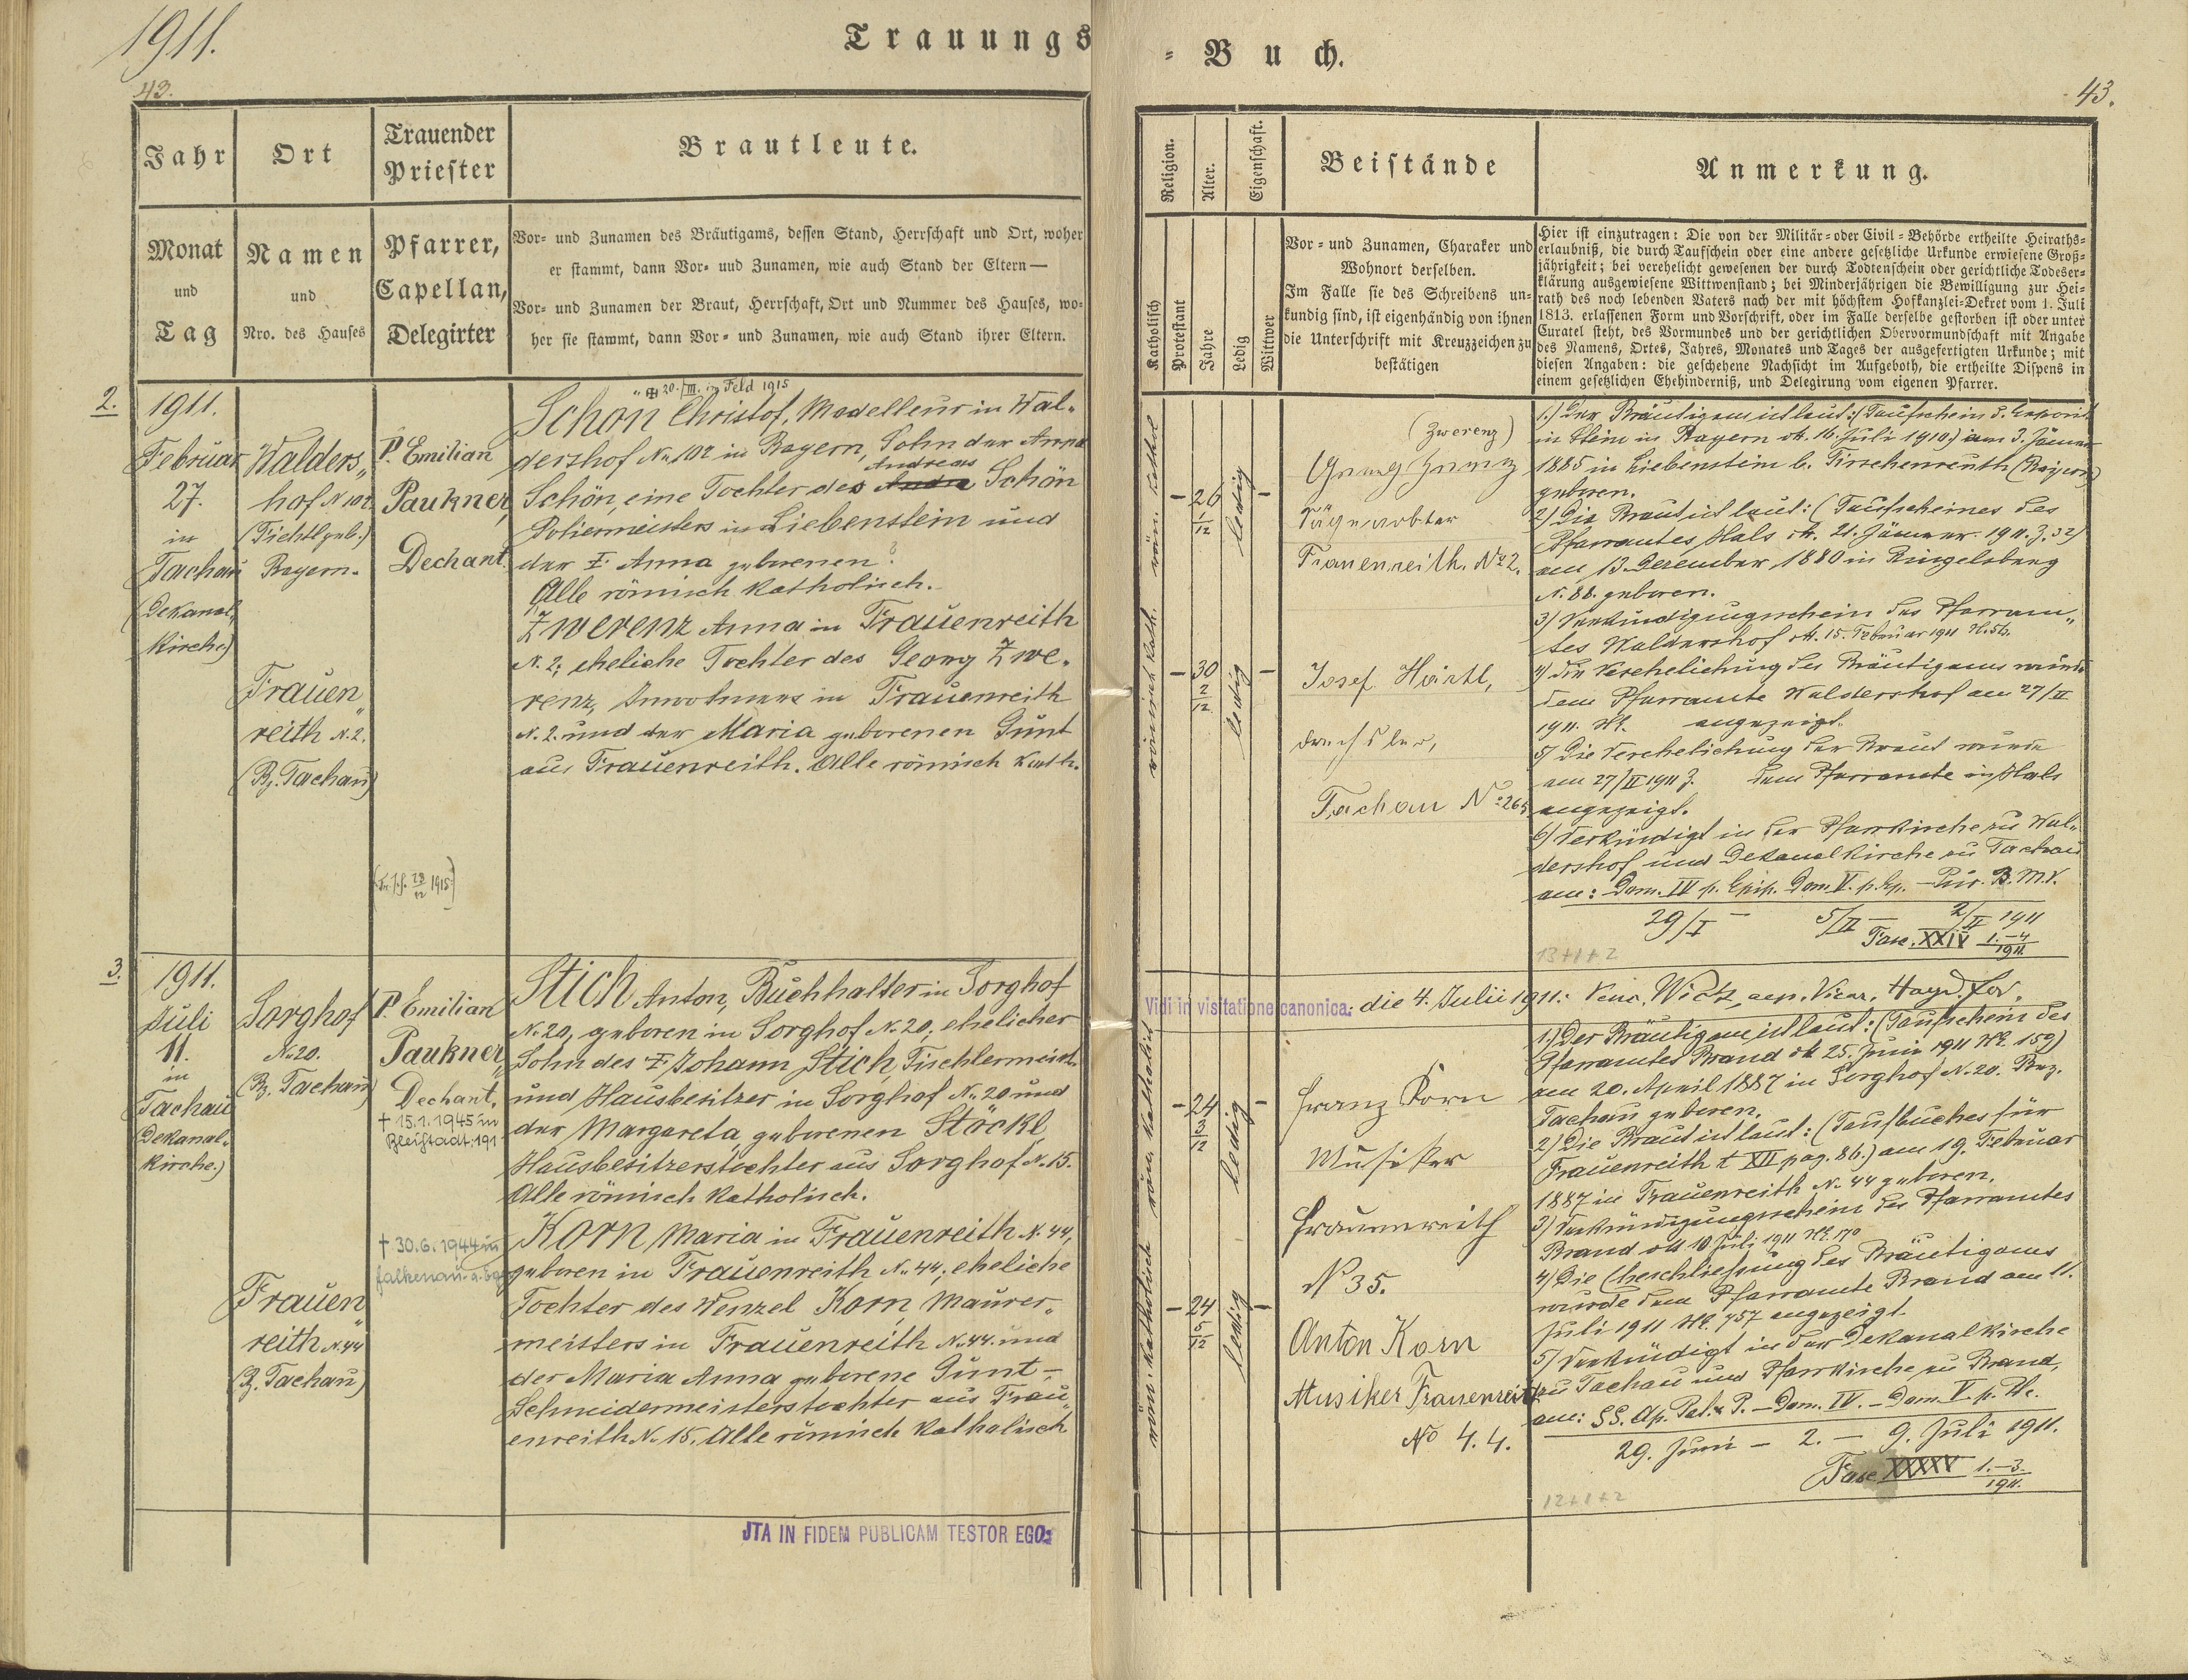 1911.
Trauungs
43.
Jahr
Ort
Trauender
Priester
Brautleute.
Monat
und
Tag
Namen
und
Nro. des Hauses
Pfarrer,
Capellan,
Delegirter
Vor- und Zunamen des Bräutigams, dessen Stand, Herrschaft und Ort, woher
er stammt, dann Vor- und Zunamen, wie auch Stand der Eltern —
Vor- und Zunamen der Braut, Herrschaft, Ort und Nummer des Hauses, wo-
her sie stammt, dann Vor- und Zunamen, wie auch Stand ihrer Eltern.
2.
1911.
Februar
27.
in
Tachau
(Dekanal-
kirche)
Walders„
hof N 102
(Fichtlgeb.)
Bayern.
Frauen„
reith N. 2.
(Bz. Tachau)
P. Emilian
Paukner,
Dechant.
28/12 1915
⊕ 20./III. im Feld 1915
Schön Christof, Modelleur in Wal„
dershof No 102 in Bayern, Sohn der Anna
Andreas
Schön, eine Tochter des Andre Schön
Poliermeisters in Liebenstein und
der ✝ Anna geborenen ?
Alle römisch katholisch.
Zwerenz Anna in Frauenreith
N. 2; eheliche Tochter des Georg Zwe„
renz, Inwohners in Frauenreith
N. 2. und der Maria geborenen Gunt
aus Frauenreith. Alle römisch kath.
3.
1911.
Juli
11.
in
Tachau
(Dekanal-
kirche.)
Sorghof
No 20.
(Bz. Tachau)
Frauen„
reith N. 44
(Bz. Tachau)
P. Emilian
Paukner„
Dechant.
† 15.1.1945 in
Bleistadt, 191
† 30.6.1944 in
Falkenau a. Eger
Stich Anton, Buchhalter in Sorghof
No 20, geboren in Sorghof No 20; ehelicher
Sohn des ✝ Johann Stich, Tischlermeist.
und Hausbesitzer in Sorghof No 20 und
der Margareta, geborenen Stöckl
Hausbesitzerstochter aus Sorghof No 15.
Alle römisch katholisch.
Korn Maria in Frauenreith N. 44,
geboren in Frauenreith No 44; eheliche
Tochter des Wenzel Korn, Maurer„
meisters in Frauenreith No 44. und
der Maria Anna geborene Gunt –
Schneidermeisterstochter aus Frau„
enreith No 15. Alle römisch katholisch
JTA IN FIDEM PUBLICAM TESTOR EGO:
- Buch.
43.
Religion.
Alter.
Eigenschaft.
Beistände
Anmerkung.
Katholisch
Protestant
Jahre
Ledig
Wittwer
Vor- und Zunamen, Charakter und
Wohnort derselben.
Im Falle sie des Schreibens un-
kundig sind, ist eigenhändig von ihnen
die Unterschrift mit Kreuzzeichen zu
bestätigen
Hier ist einzutragen: Die von der Militär- oder Civil-Behörde ertheilte Heiraths-
erlaubniß, die durch Taufschein oder eine andere gesetzliche Urkunde erwiesene Groß-
jährigkeit; bei verehelicht gewesenen der durch Todtenschein oder gerichtliche Todeser-
klärung ausgewiesene Wittwenstand; bei Minderjährigen die Bewilligung zur Hei-
rath des noch lebenden Vaters nach der mit höchstem Hofkanzlei-Dekret vom 1. Juli
1813. erlassenen Form und Vorschrift, oder im Falle derselbe gestorben ist oder unter
Curatel steht, des Vormundes und der gerichtlichen Obervormundschaft mit Angabe
des Namens, Ortes, Jahres, Monates und Tages der ausgefertigten Urkunde; mit
diesen Angaben: die geschehene Nachsicht im Aufgeboth, die ertheilte Dispens in
einem gesetzlichen Ehehinderniß, und Delegirung vom eigenen Pfarrer.
röm. kathol
– 26 1/12
ledig –
römisch kath.
– 30 2/12
ledig –
(Zwerenz)
Georg Zwerenz
Tagearbeiter
Frauenreith. No 2.
Josef Härtl,
Drechsler,
Tachau No 265
1.) Der Bräutigam ist laut: (Taufschein d. Exposit.
in Stein in Bayern dt. 16. Juli 1910) am 3. Jänner
1885 in Liebenstein b. Tirschenreuth (Bayern)
geboren.
2) Die Braut ist laut: (Taufscheines des
Pfarramtes Hals dt. 21. Jänner 1911. Z. 32)
am 13. Dezember 1880 in Ringelsberg
N. 88. geboren.
3) Verkündigungsschein des Pfarram„
tes Waldershof dt. 15. Februar 1911
4) Die Verehelichung des Bräutigams wurde
dem Pfarramte Waldershof am 27/II
1911. angezeigt.
5) Die Verehelichung der Braut wurde
am 27/II 1911 Z. dem Pfarramte in Hals
angezeigt.
6) Verkündigt in der Pfarrkirche zu Wal„
dershof und Dekanalkirche zu Tachau
am: Dom. IV p. Epip. Dom. V. p. Ep. – Pur. B.M.V.
29/I – 5/II – 2/II 1911
Fasc. XXIV 1.–4/1911.
13+1+2
Vidi in visitatione canonica: die 4. Julii 1911:
röm. katholisch
– 24 3/12
ledig –
röm. katholisch
– 24 5/12
ledig –
Franz Korn
Musiker
Frauenreith
No 35.
Anton Korn
Musiker Frauenreith
No 44.
1.) Der Bräutigam ist laut: (Taufschein des
Pfarramtes Brand dt 25. Juni 1911 159)
am 20. April 1887 in Sorghof N. 20. Bez.
Tachau geboren.
2) Die Braut ist laut: (Taufbuches für
Frauenreith t XII pag. 86.) am 19. Februar
1887 in Frauenreith No 44 geboren.
3) Verkündigungsschein des Pfarramtes
Brand dt 10 Juli 1911 170
4) Die Eheschließung des Bräutigams
wurde dem Pfarramte Brand am 11.
Juli 1911 457 angezeigt.
5) Verkündigt in der Dekanalkirche
zu Tachau und Pfarrkirche zu Brand,
am: SS. Ap. Pet. & P. – Dom. IV. – Dom. V. p. Pe.
29. Juni – 2. – 9. Juli 1911.
Fasc XXXXV 1.–3./1911.
12+1+2